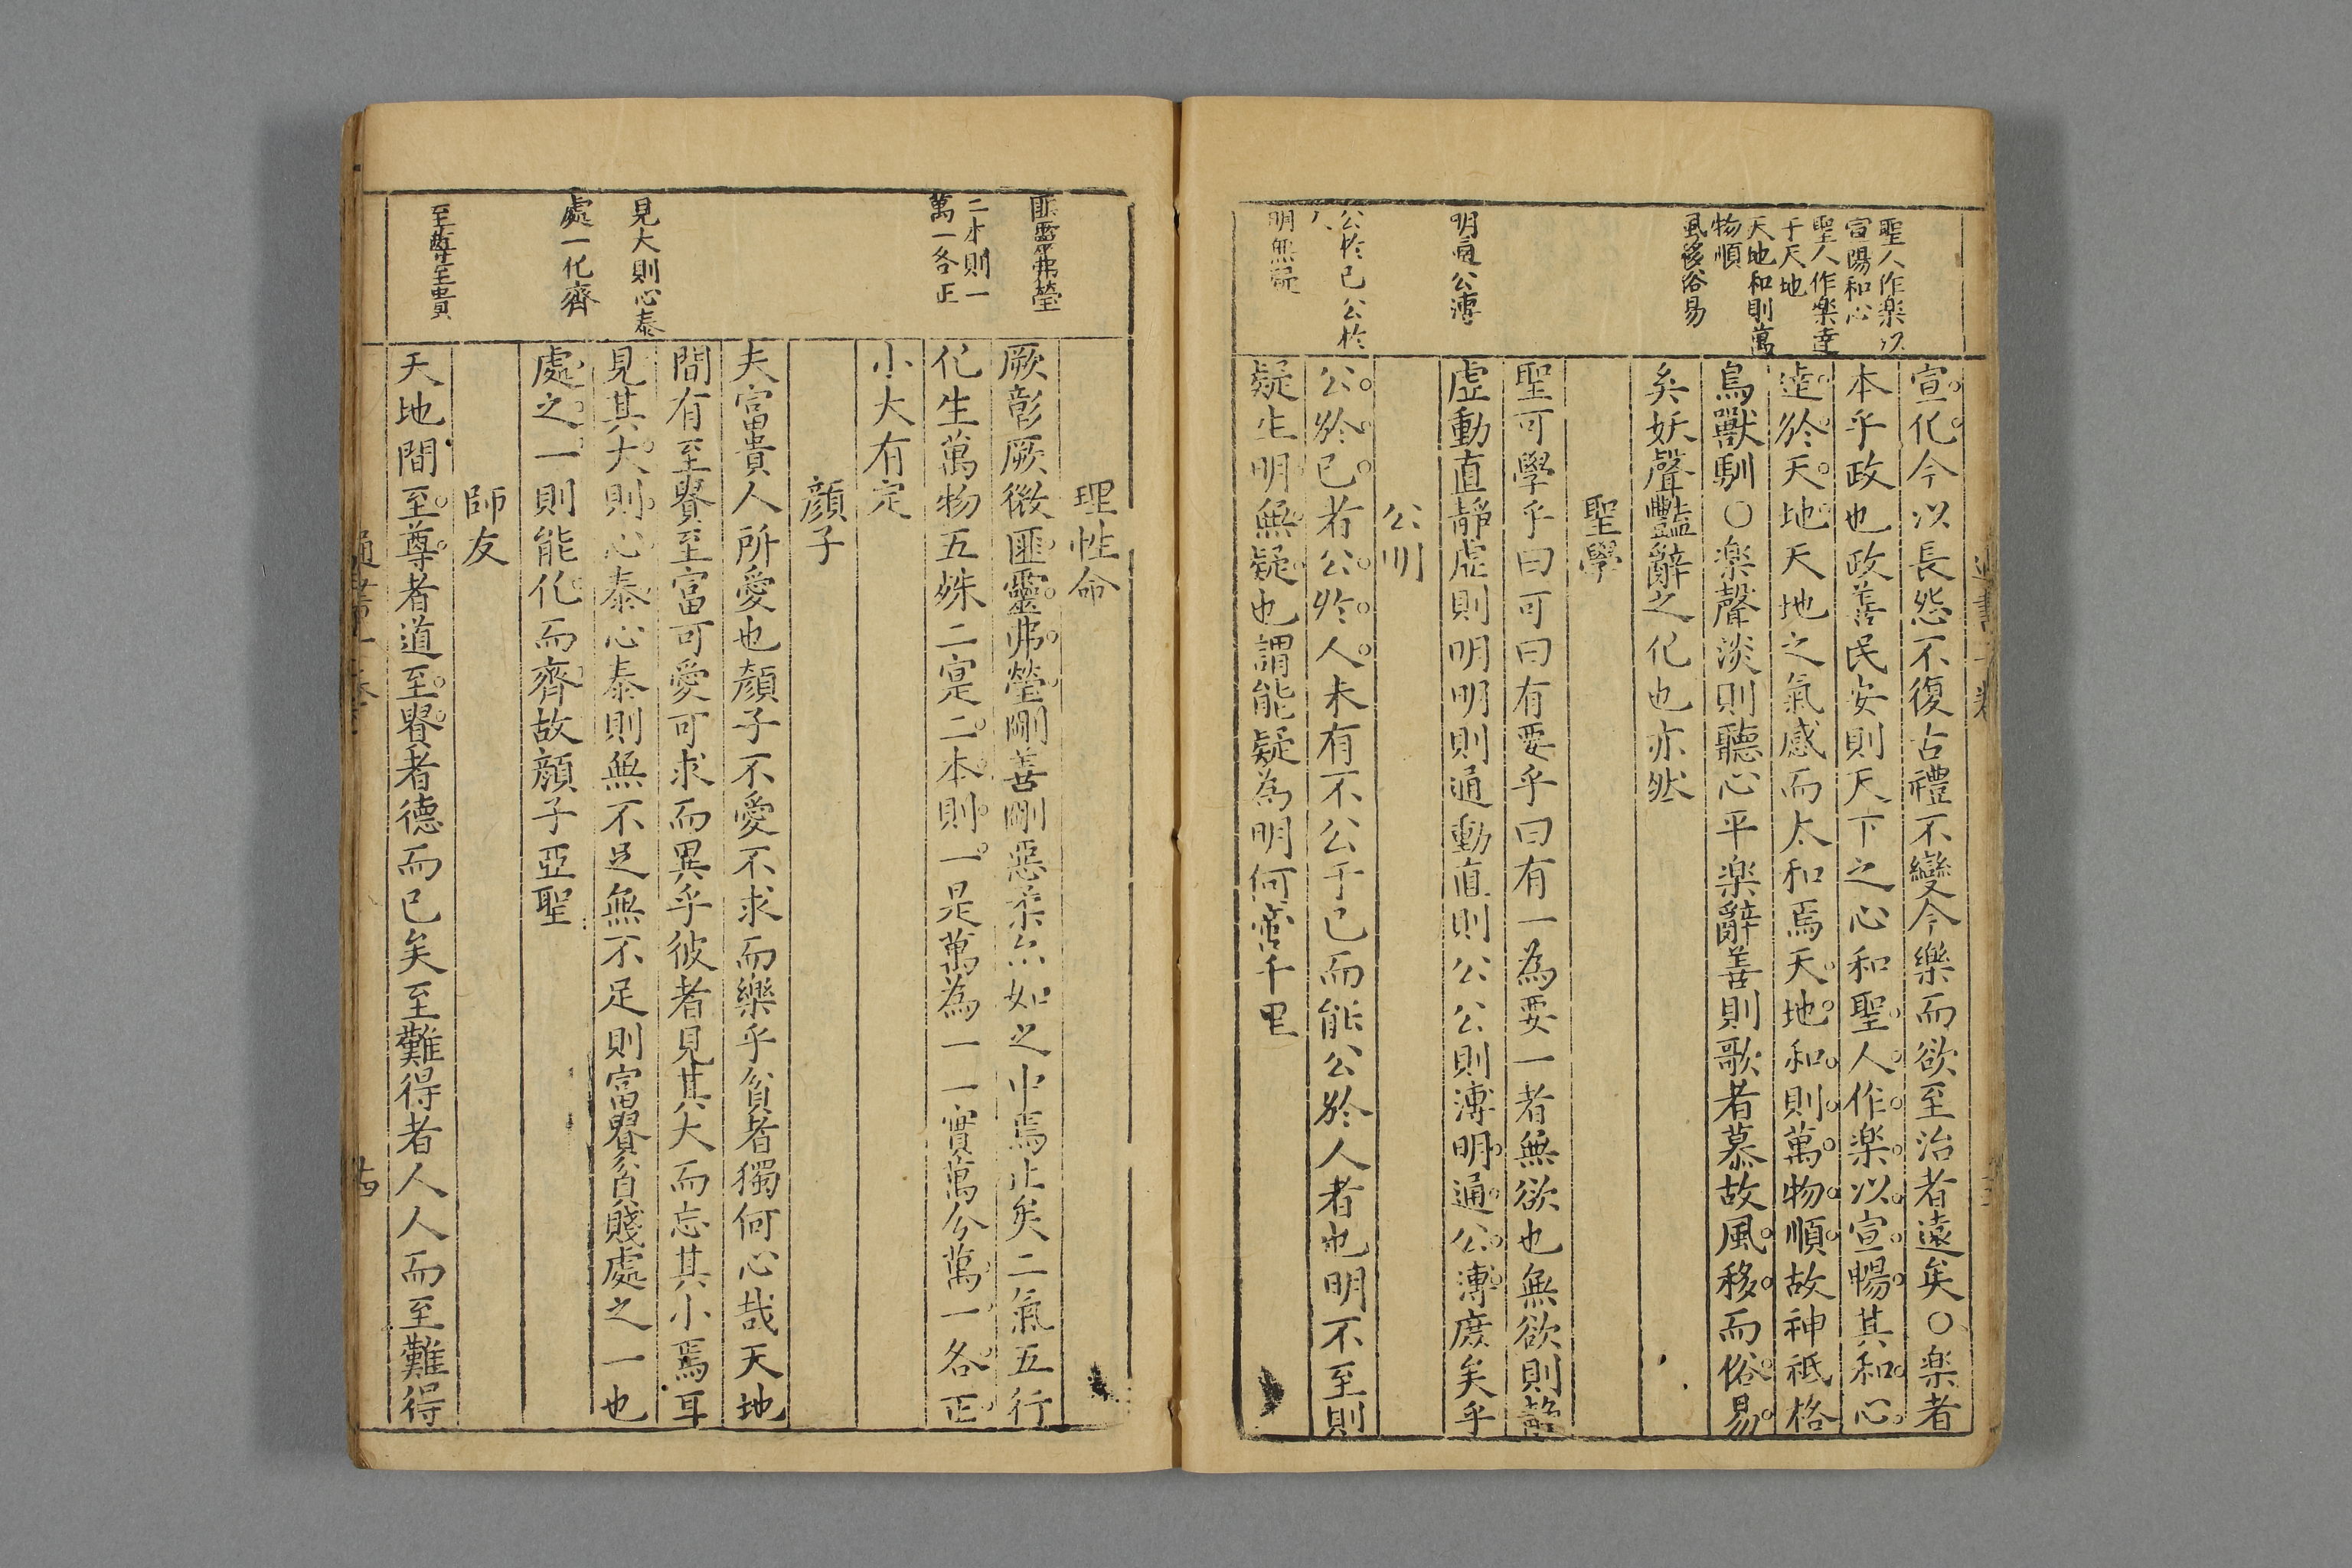 聖人作楽以
宣陽和心
聖人作樂達
于天地
天地和則萬
物順
風移俗易
明通公溥
公於已公於
人
明無疑
宣化今以長怨不復古禮不變今樂而欲至治者遠矣○楽者
本乎政也政善民安則天下之心和聖人作楽以宣暢其和心
逹於天地天地之氣感而太和焉天地和則萬物順故神祗格
鳥獸馴○楽聲淡則聽心平楽辭善則歌者慕故風移而俗易
矣妖聲豔辭之化也亦然
聖學
聖可學乎曰可曰有要乎曰有一為要一者無欲也無欲則靜
虛動直靜虛則明明則通動直則公公則溥明通公溥庶矣乎
公明
公於已者公於人未有不公于已而能公於人者也明不至則
疑生明無疑也謂能疑為明何啻千里
匪靈弗瑩
二本則一
萬一各正
見大則心泰
處一化齊
至尊至貴
理性命
厥彰厥微匪靈弗瑩剛善剛惡柔亦如之中焉止矣二氣五行
化生萬物五殊二寔二本則一是萬為一一實萬分萬一各正
小大有定
顔子
夫富貴人所愛也顔子不愛不求而樂乎貧者獨何心哉天地
間有至貴至富可愛可求而異乎彼者見其大而忘其小焉耳
見其大則心泰心泰則無不足無不足則富貴貧賤處之一也
處之一則能化而齊故顔子亞聖
師友
天地間至尊者道至貴者德而已矣至難得者人人而至難得